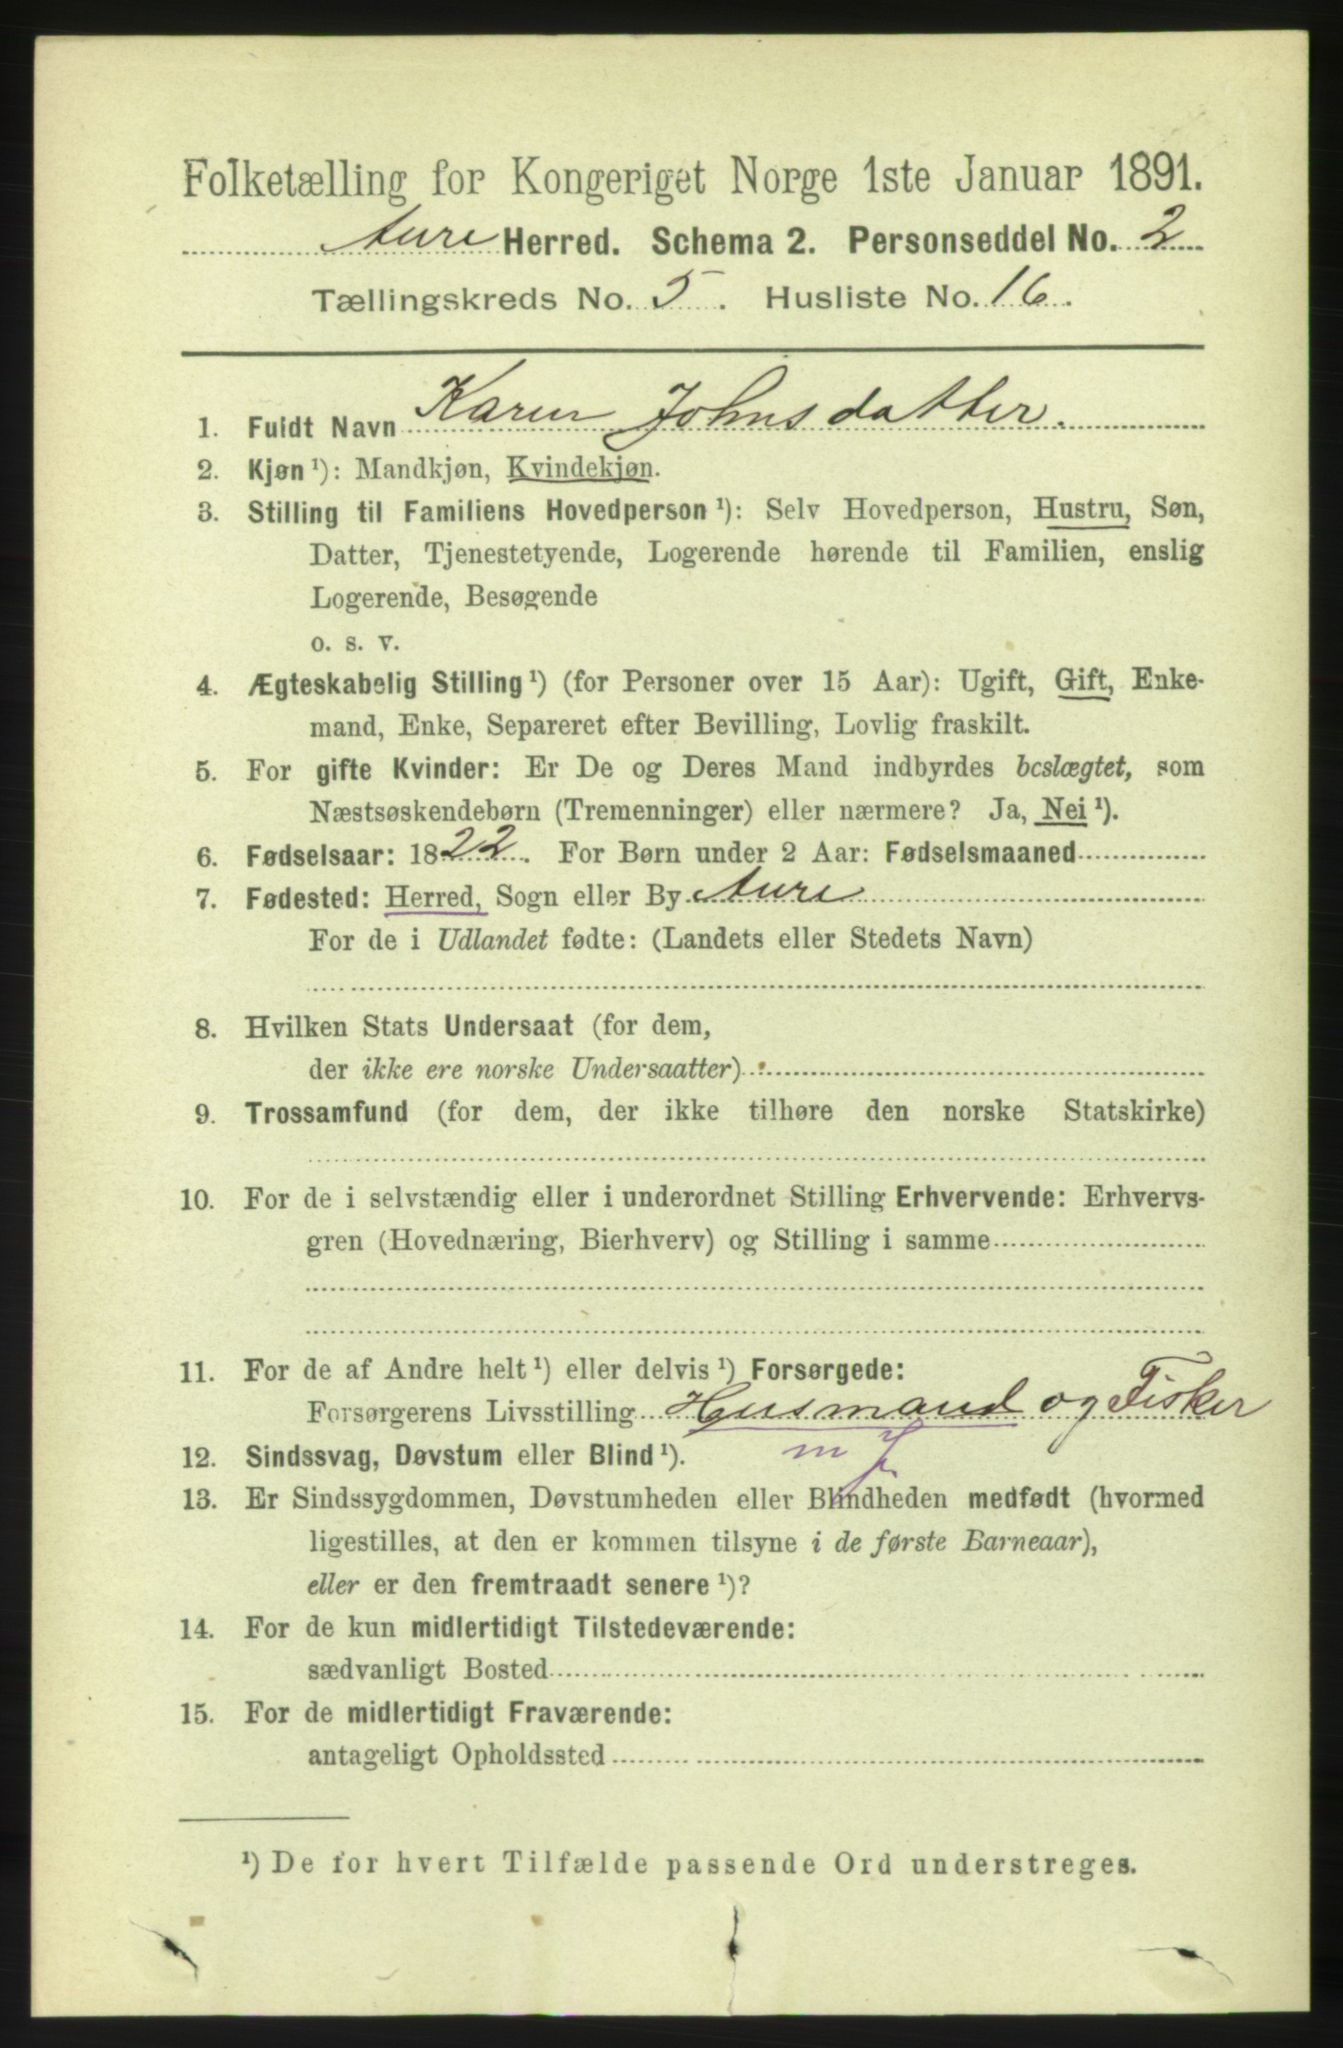 Folketælling for Kongeriget Norge 1ste Januar 1891.
Aure Herred. Schema 2. Personseddel No. 2
Tællingskreds No. 5. Husliste No. 16.
1. Fuldt Navn Karen Johnsdatter.
2. Kjøn ¹): Mandkjøn, Kvindekjøn.
3. Stilling til Familiens Hovedperson ¹): Selv Hovedperson, Hustru, Søn,
Datter, Tjenestetyende, Logerende hørende til Familien, enslig
Logerende, Besøgende
o. s. v.
4. Ægteskabelig Stilling ¹) (for Personer over 15 Aar): Ugift, Gift, Enke-
mand, Enke, Separeret efter Bevilling, Lovlig fraskilt.
5. For gifte Kvinder: Er De og Deres Mand indbyrdes beslægtet, som
Næstsøskendebørn (Tremenninger) eller nærmere? Ja, Nei ¹).
6. Fødselsaar: 1822. For Børn under 2 Aar: Fødselsmaaned
7. Fødested: Herred, Sogn eller By Aure
For de i Udlandet fødte: (Landets eller Stedets Navn)
8. Hvilken Stats Undersaat (for dem,
der ikke ere norske Undersaatter)
9. Trossamfund (for dem, der ikke tilhøre den norske Statskirke)
10. For de i selvstændig eller i underordnet Stilling Erhvervende: Erhvervs-
gren (Hovednæring, Bierhverv) og Stilling i samme
11. For de af Andre helt ¹) eller delvis ¹) Forsørgede:
Forsørgerens Livsstilling Husmand og Fisker
m J
12. Sindssvag, Døvstum eller Blind ¹).
13. Er Sindssygdommen, Døvstumheden eller Blindheden medfødt (hvormed
ligestilles, at den er kommen tilsyne i de første Barneaar),
eller er den fremtraadt senere ¹)?
14. For de kun midlertidigt Tilstedeværende:
sædvanligt Bosted
15. For de midlertidigt Fraværende:
antageligt Opholdssted
¹) De for hvert Tilfælde passende Ord understreges.